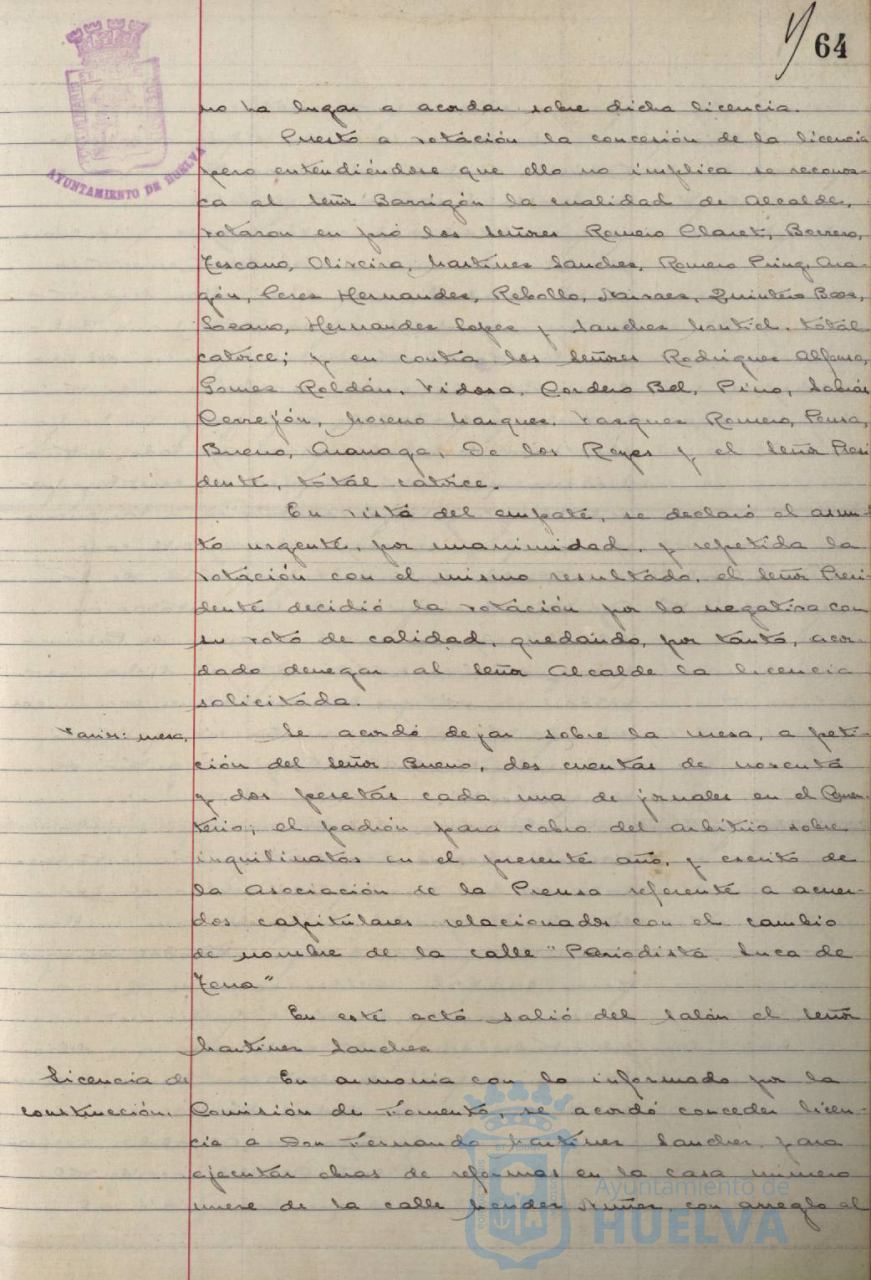 64
AYUNTAMIENTO DE HUELVA
no ha lugar a acordar sobre dicha licencia.
Puesto a votación la concesión de la licencia
pero entendiéndose que ello no implica se reconoz-
ca al Señor Barrigón la cualidad de Alcalde,
votaron en pró los Señores Romero Claret, Borrero,
Toscano, Oliveira, Martínez Sanchez, Romero Ara-
gón, Perez Hernandez, Rebollo, Narvaez, Quintero Baez,
Lozano, Hernandez Lopez y Sanchez Montiel. total
catorce; y en contra los Señores Rodriguez Alfonso,
Gomez Roldán, Vidosa, Cordero Bel, Pino,
Cerrejón, Moreno Marquez, Vazquez Romero, Ponce,
Bueno, De los Reyes y el Señor Presi
dente, total catorce.
En vista del empate, se declaró el asun-
to urgente, por unanimidad, y repetida la
votación con el mismo resultado, el Señor Presi-
dente decidió la votación por la negativa con
su voto de calidad, quedando, por tanto, acor-
dado denegar al Señor Alcalde la licencia
solicitada.
Varios: mesa.
Se acordó dejar sobre la mesa, a peti-
ción del Señor Bueno, dos cuentas de noventa
y dos pesetas cada una de jornales en el Cemen-
terio; el padrón para cobro del arbitrio sobre
inquilinatos en el presente año, y escrito de
la Asociación de la Prensa referente a acuer-
dos capitulares relacionados con el cambio
de nombre de la calle "Periodista Luca de
Tena"
En este acto salió del Salón el Señor
Martínez Sanchez
Licencia de
construcción.
En armonia con lo informado por la
Comisión de Fomento, se acordó conceder licen-
cia a Don Fernando Martinez Sanchez para
ejecutar obras de reformas en la casa número
nueve de la calle Mendez Nuñez, con arreglo al
Ayuntamiento de
HUELVA